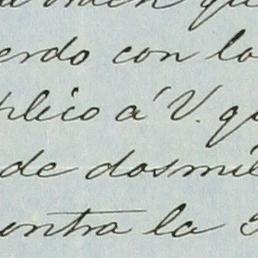 orden que
erdo con la
plico á V. qu
de dosmil
ontra la